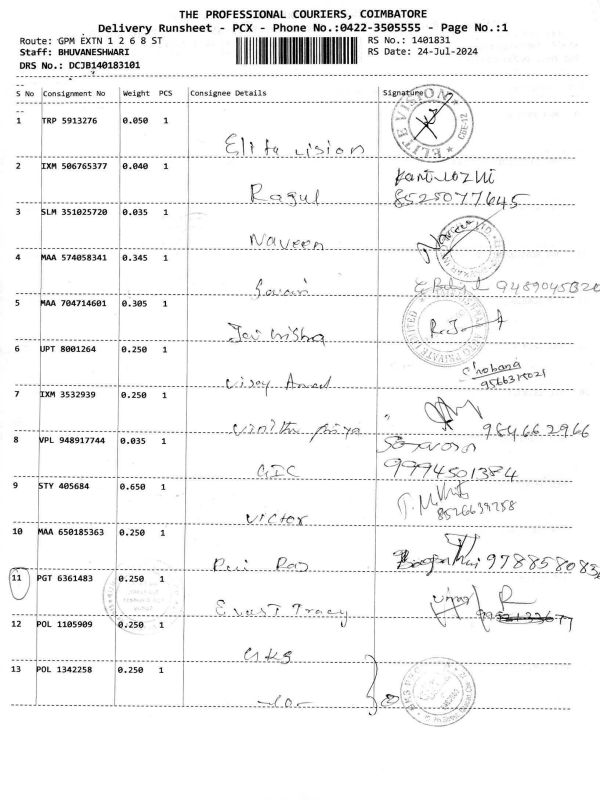 THE PROFESSIONAL COURIERS, COIMBATORE
Delivery Runsheet - PCX - Phone No.:0422-3505555 - Page No.:1
Route: GPM EXTN 1 2 6 8 ST
RS No.: 1401831
Staff: BHUVANESHWARI
RS Date: 24-Jul-2024
DRS No.: DCJB140183101
S No Consignment No Weight PCS Consignee Details Signature
1 TRP 5913276 0.050 1
ELITE VISION CBE-12
Elite vision
2 IXM 506765377 0.040 1
Ragul 8525077645
3 SLM 351025720 0.035 1
Naveen
4 MAA 574058341 0.345 1
5 MAA 704714601 0.305 1
AUTO PRIVATE LIMITED
6 UPT 8001264 0.250 1
Vijay Anand
7 IXM 3532939 0.250 1
984662966
8 VPL 948917744 0.035 1
GDC 9994501384
9 STY 405684 0.650 1
Victor 8526639258
10 MAA 650185363 0.250 1
11 PGT 6361483 0.250 1
Tracy
12 POL 1105909 0.250 1
GKS
13 POL 1342258 0.250 1